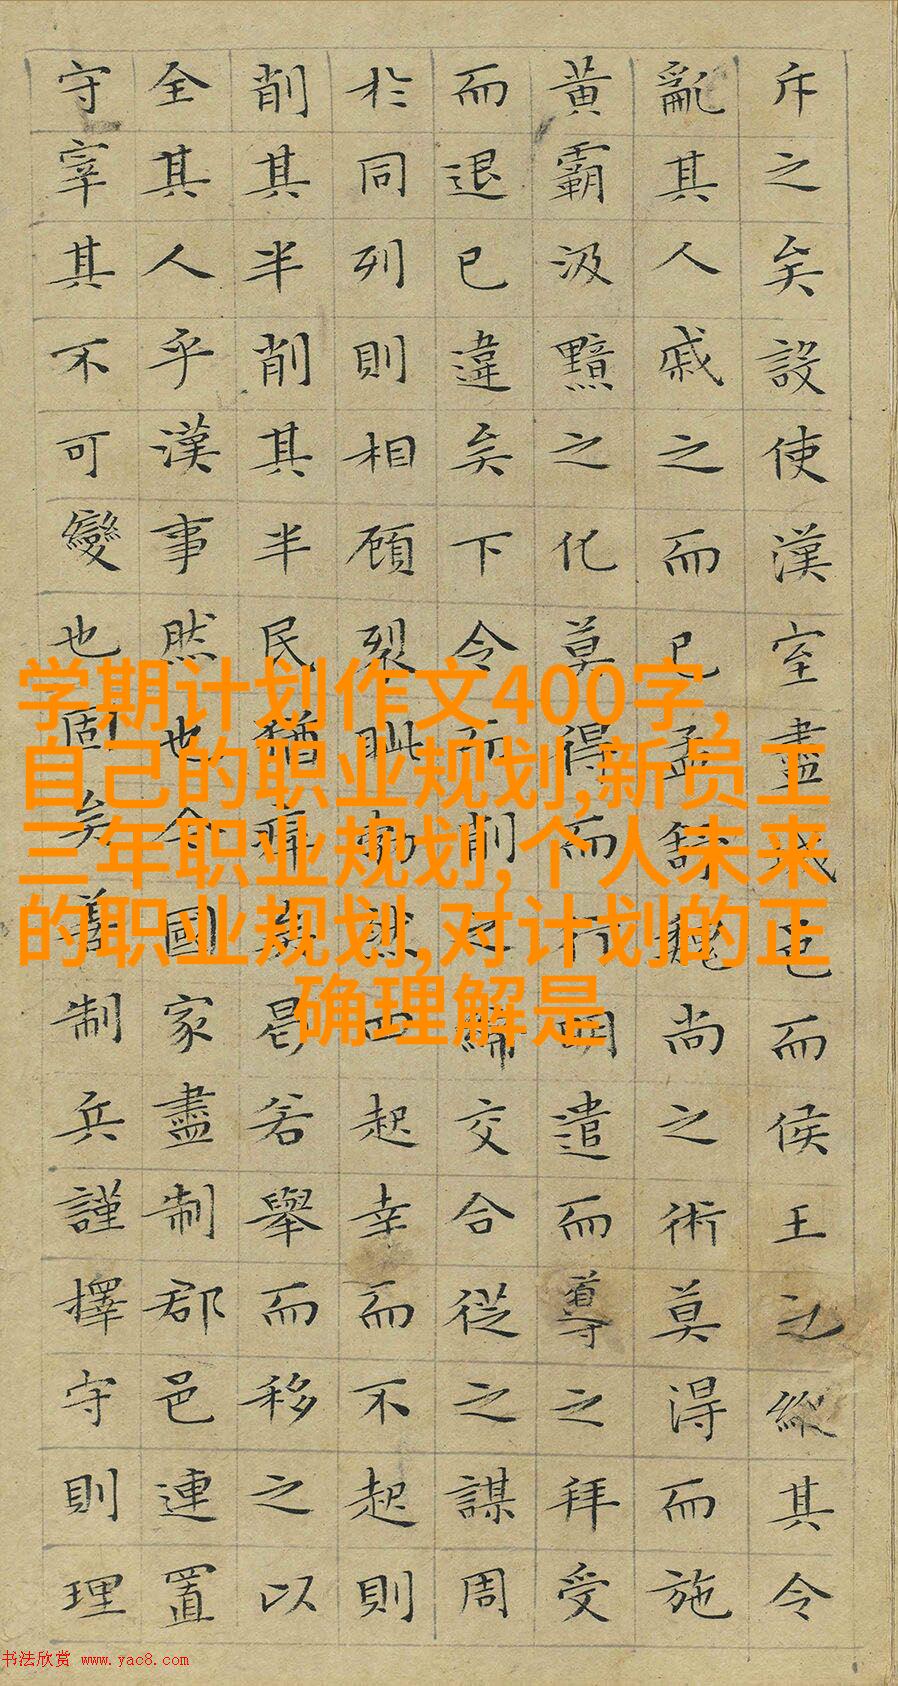 斥之矣設使漢室盡城邑而侯王之縱其令
亂其人戚之而已孟舒魏尚之術莫得而施
黃霸汲黯之化莫得而行明遣而導之拜受
而退已違矣下令而削之締交合從之謀周
於同列則相顧裂眦勃然而起幸而不起則
削其半削其半民猶瘁矣曷若舉而移之以
全其人乎漢事然也今國家盡制郡邑連置
守宰其不可變也固矣善制兵謹擇守則理
学期计划作文400字,
自己的职业规划,新员工
三年职业规划,个人未来
的职业规划,对计划的正
确理解是
书法欣赏 www.yac8.com